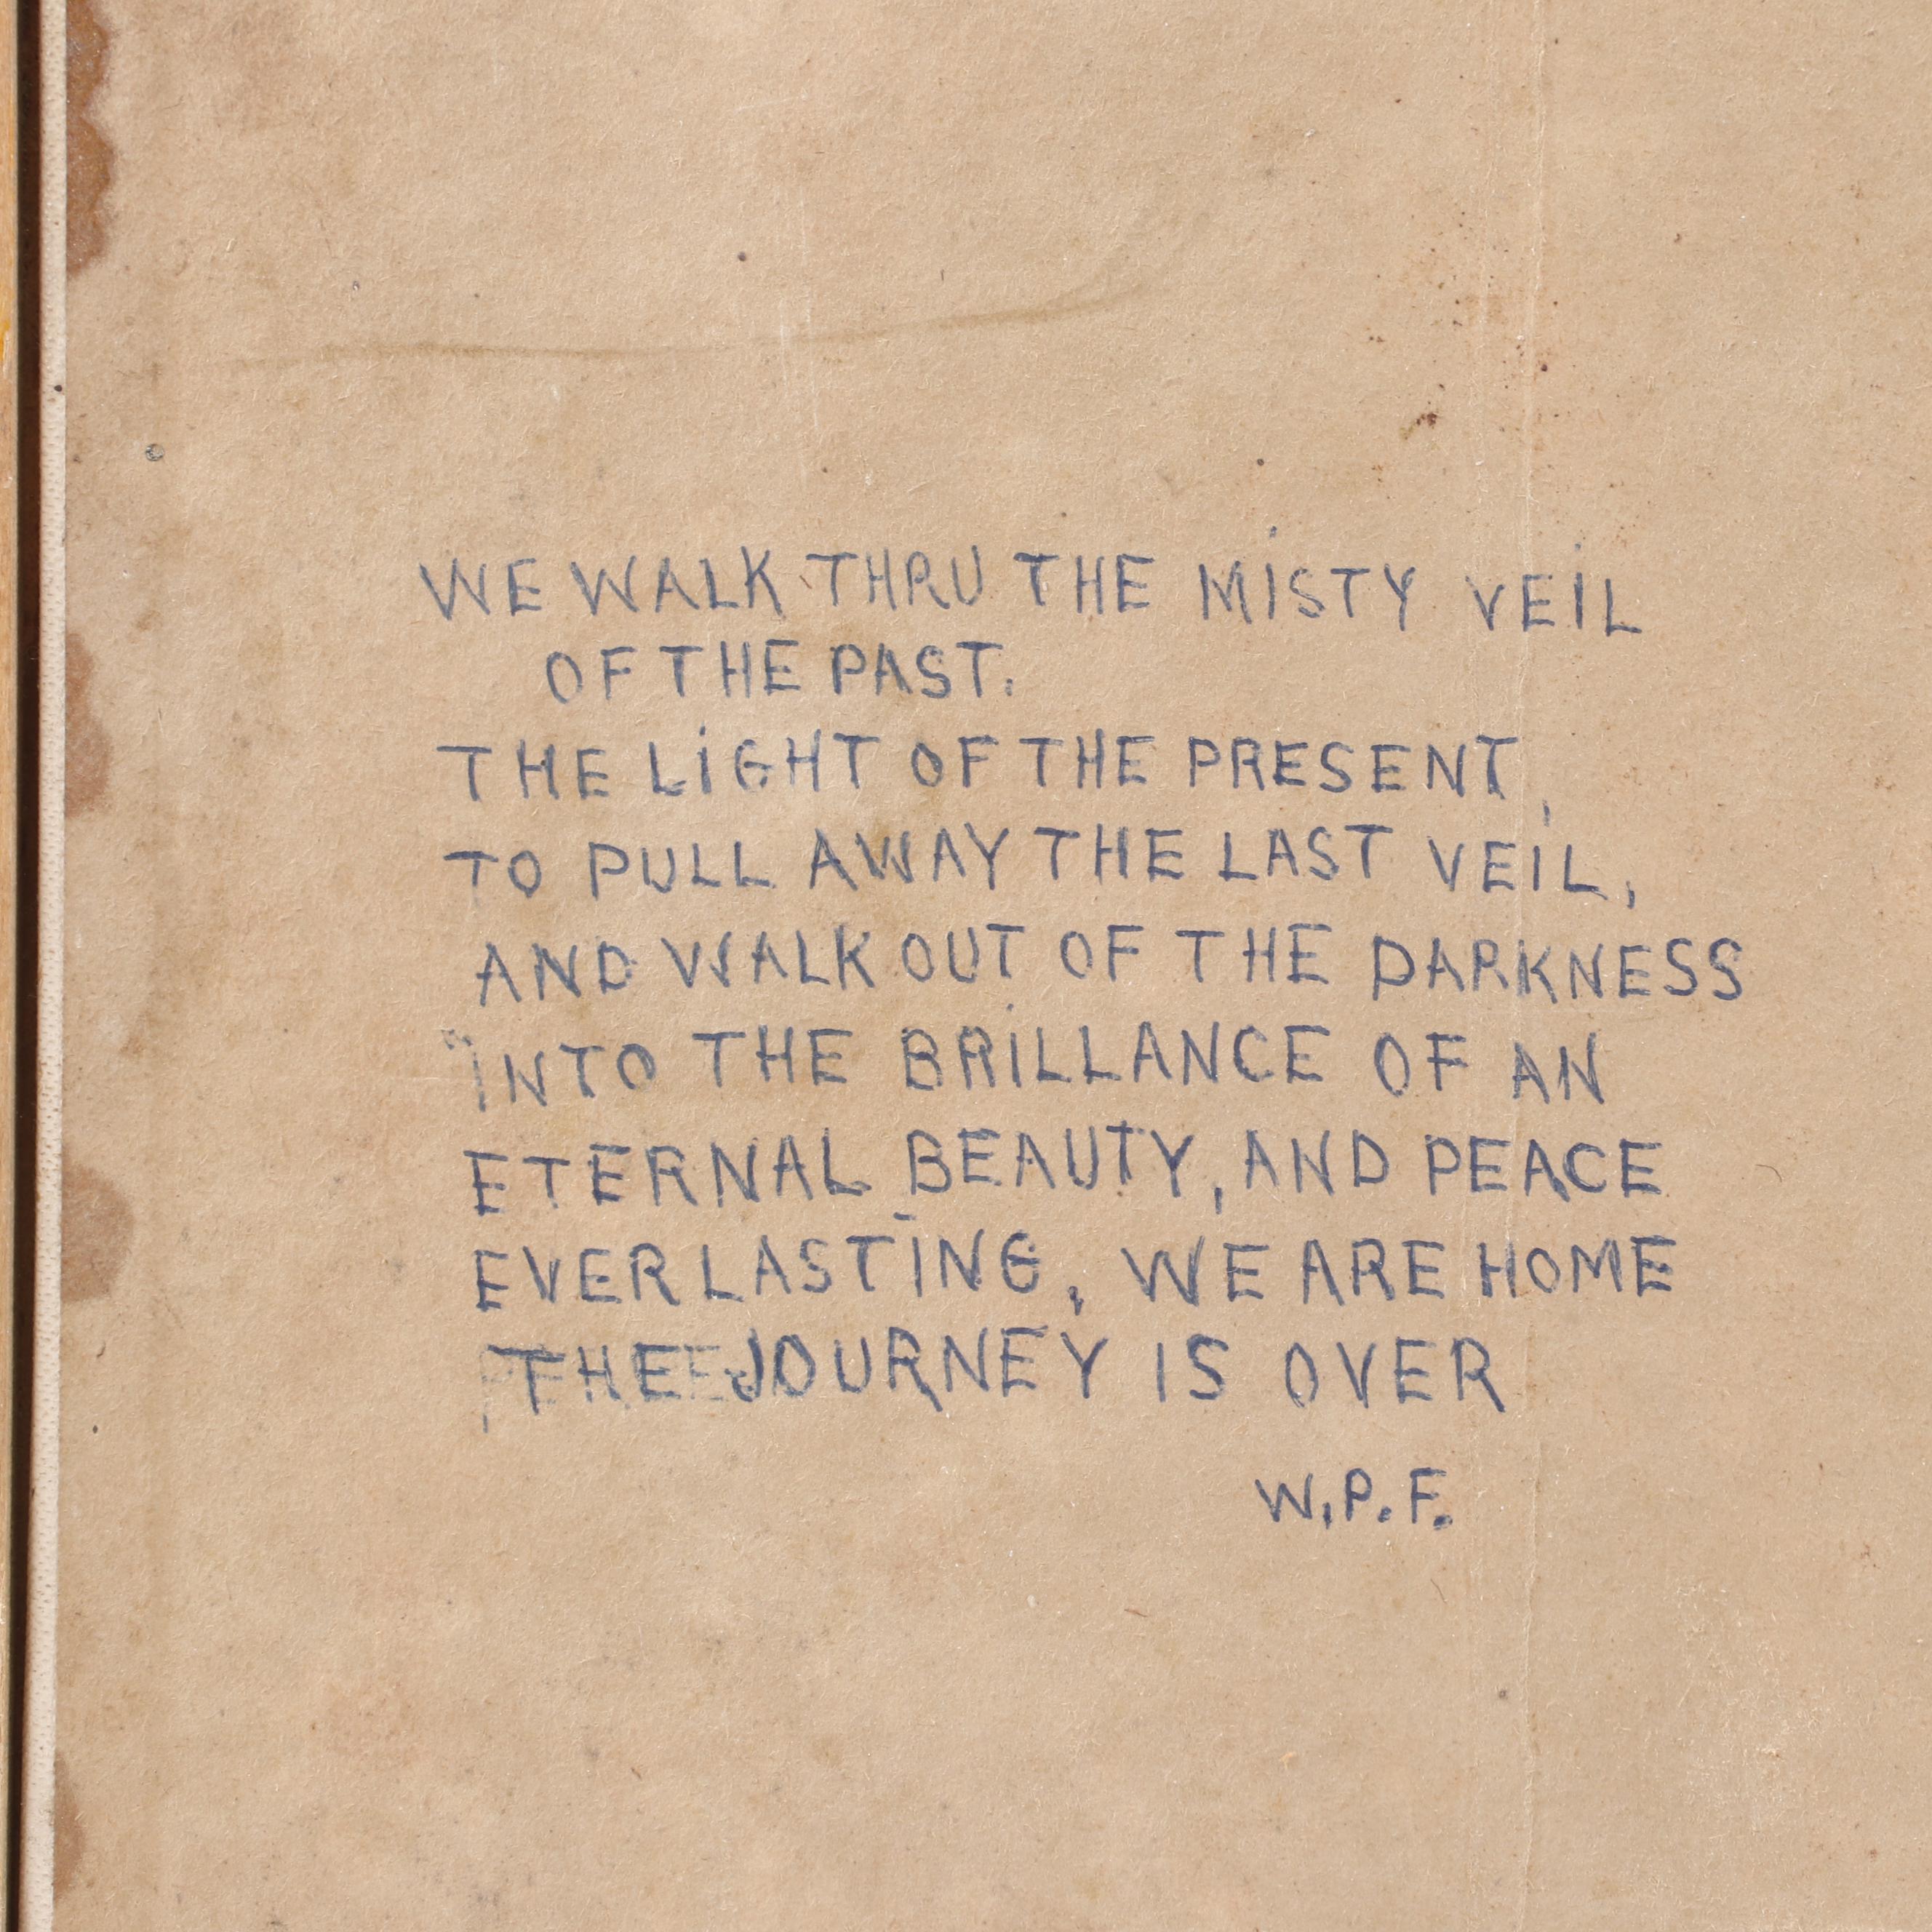 WE WALK THRU THE MISTY VEIL
OF THE PAST.
THE LIGHT OF THE PRESENT,
TO PULL AWAY THE LAST VEIL,
AND WALK OUT OF THE DARKNESS
INTO THE BRILLANCE OF AN
ETERNAL BEAUTY, AND PEACE
EVERLASTING, WE ARE HOME
THE JOURNEY IS OVER
W.P.F.